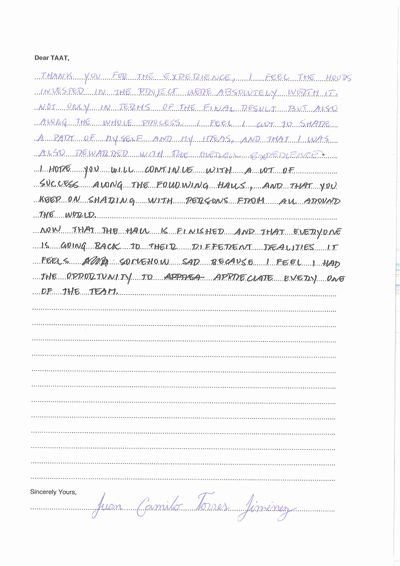 Dear TAAT,
THANK YOU FOR THE EXPERIENCE, I FEEL THE HOURS
INVESTED IN THE PROJECT WERE ABSOLUTELY WORTH IT,
NOT ONLY IN TERMS OF THE FINAL RESULT BUT ALSO
ALONG THE WHOLE PROCESS. I FEEL I GOT TO SHARE
A PART OF MYSELF AND MY IDEAS, AND THAT I WAS
ALSO REWARDED WITH THE OVERALL EXPERIENCE.
I HOPE YOU WILL CONTINUE WITH A LOT OF
SUCCESS ALONG THE FOLLOWING HALLS, AND THAT YOU
KEEP ON SHARING WITH PERSONS FROM ALL AROUND
THE WORLD.
NOW THAT THE HALL IS FINISHED AND THAT EVERYONE
IS GOING BACK TO THEIR DIFFERENT REALITIES IT
FEELS SOMEHOW SAD BECAUSE I FEEL I HAD
THE OPPORTUNITY TO APPREA APPRECIATE EVERY ONE
OF THE TEAM.
Sincerely Yours,
Juan Camilo Torres Jiminez